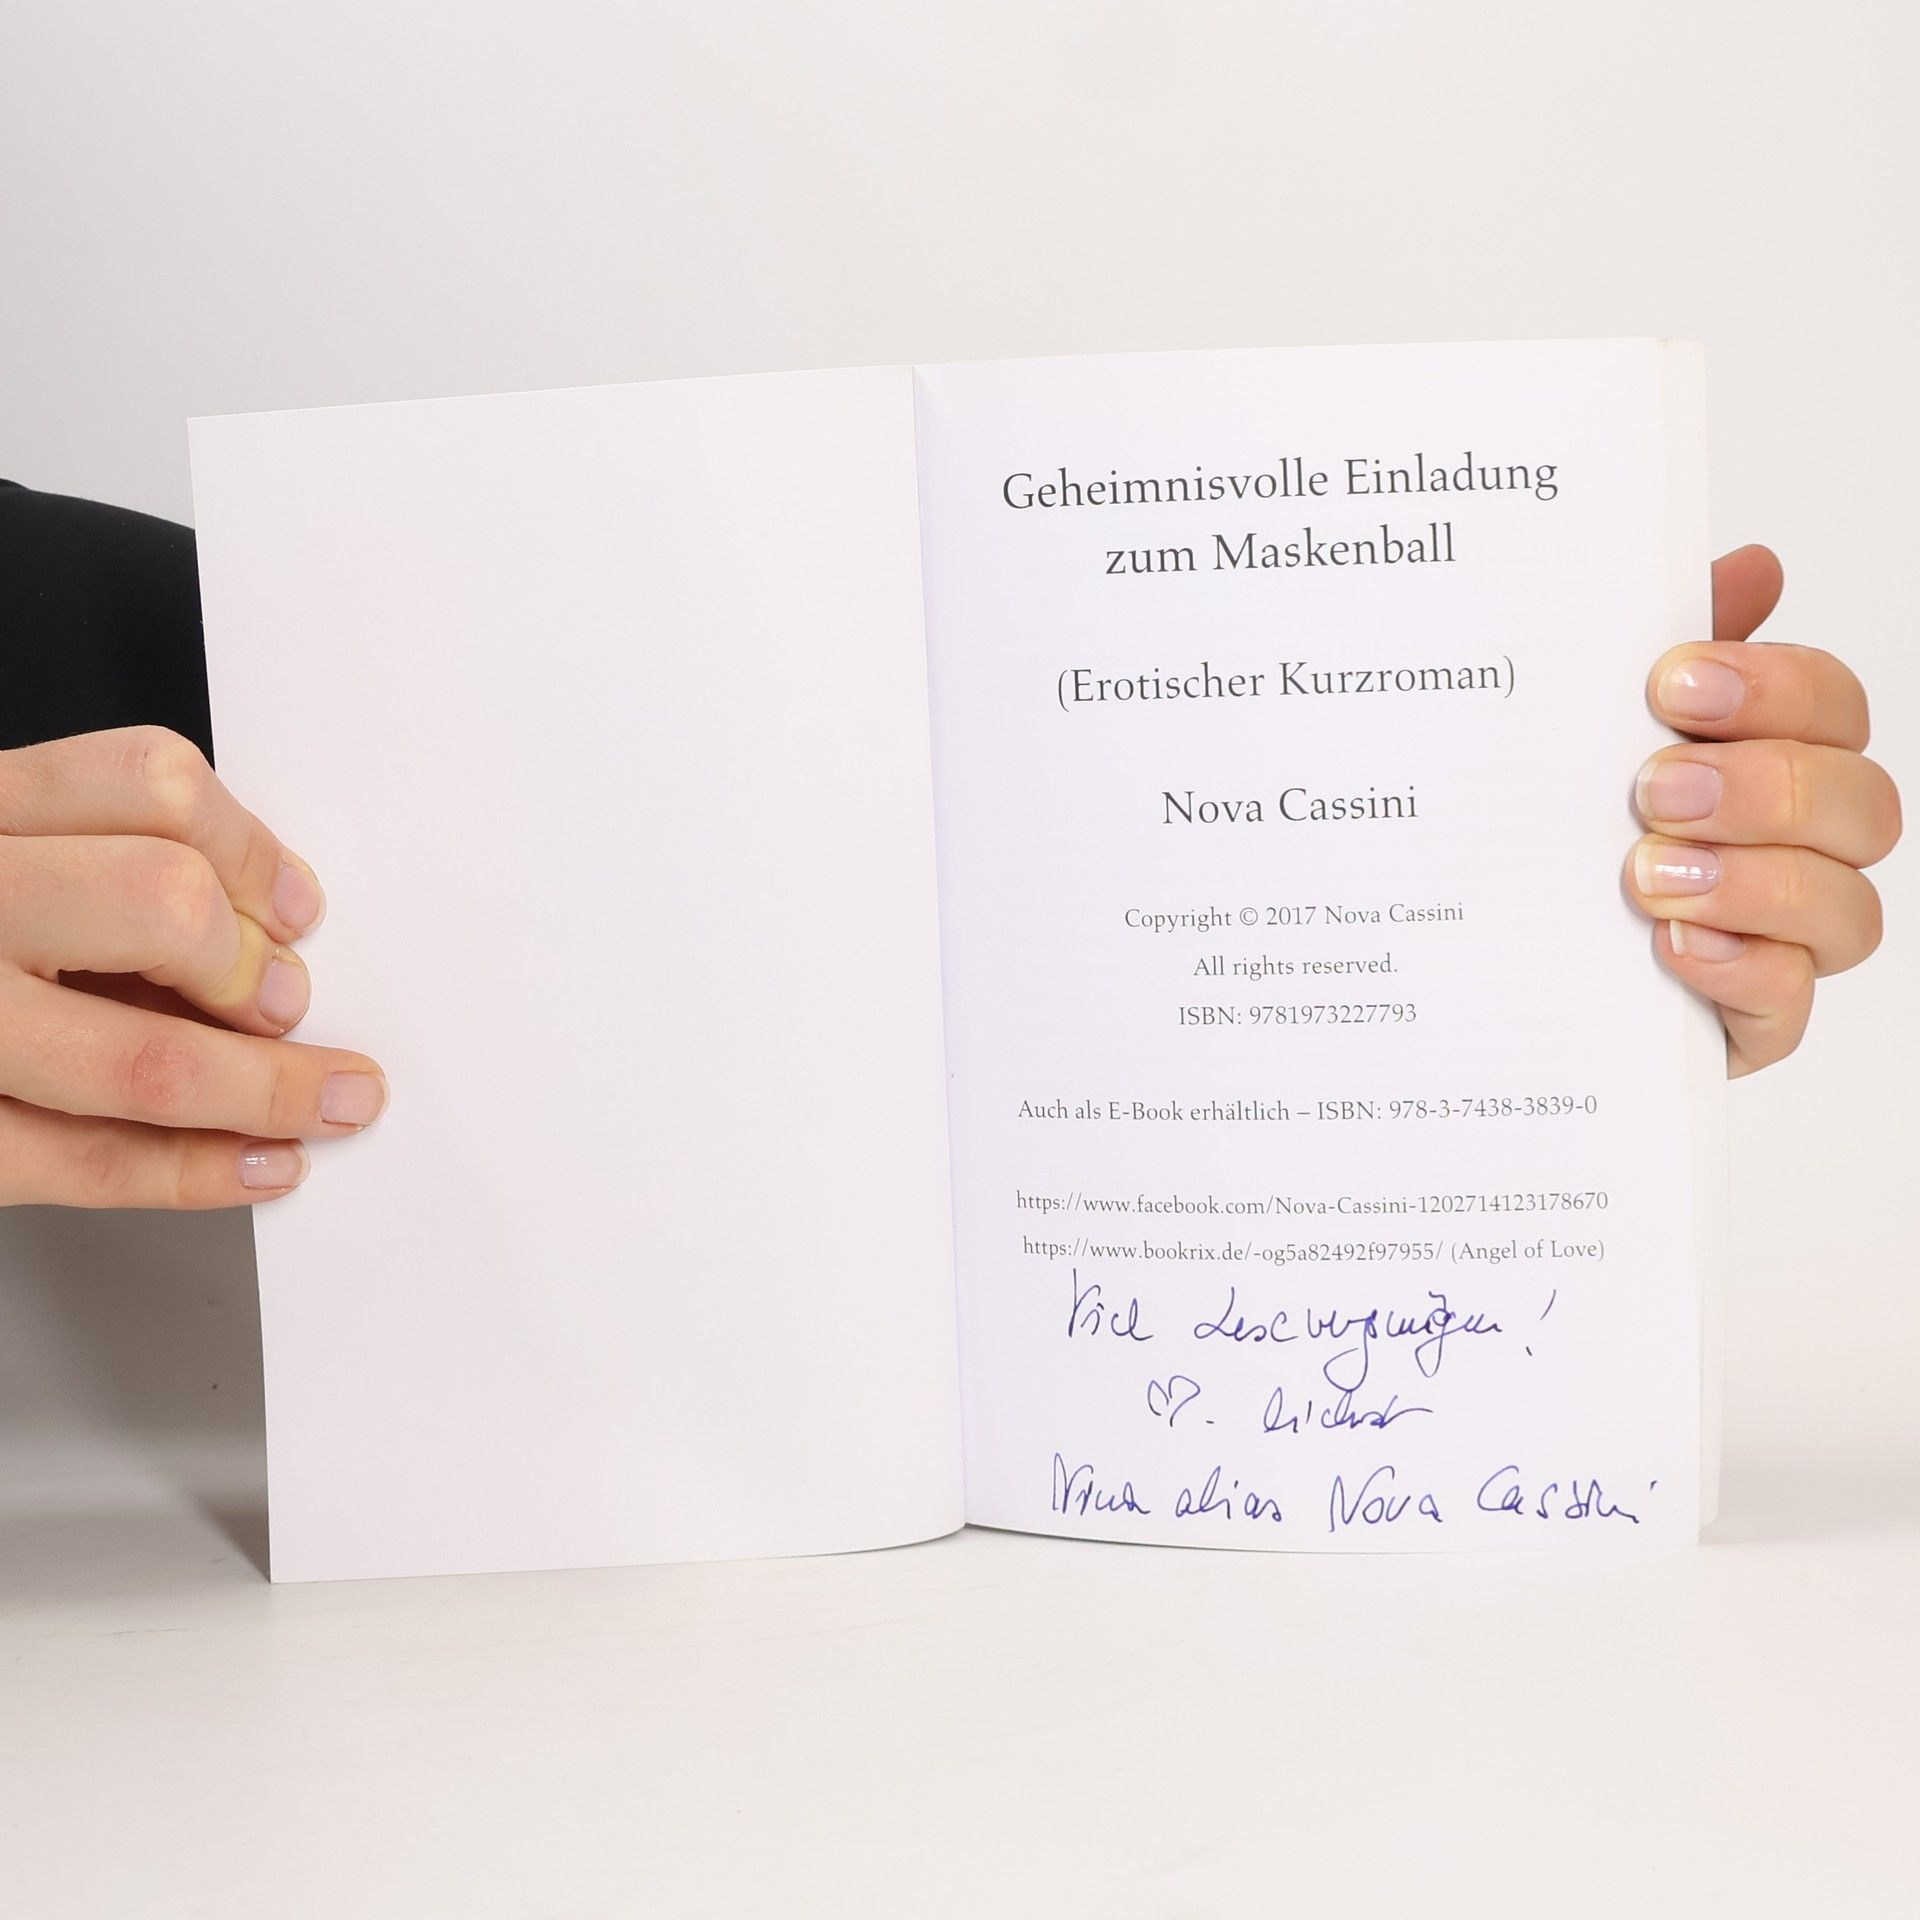 Geheimnisvolle Einladung
zum Maskenball
(Erotischer Kurzroman)
Nova Cassini
Copyright © 2017 Nova Cassini
All rights reserved.
ISBN: 9781973227793
Auch als E-Book erhältlich – ISBN: 978-3-7438-3839-0
https://www.facebook.com/Nova-Cassini-1202714123178670
https://www.bookrix.de/-og5a82492f97955/ (Angel of Love)
Viel Lesevergnügen!
Nina alias Nova Cassini